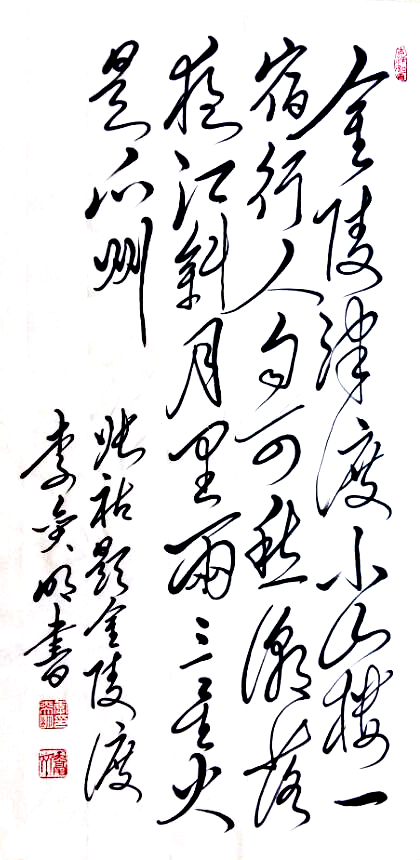 金陵津渡小山樓一
宿行人自可愁潮落
夜江斜月里兩三星火
是瓜州
張祜題金陵渡
李奕明書